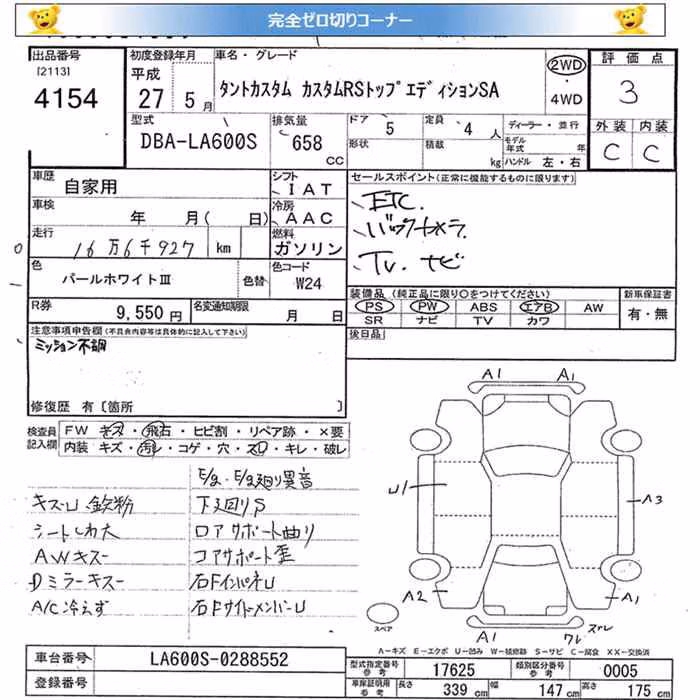 完全ゼロ切りコーナー
出品番号
[2113]
4154
初度登録年月
平成
27 5月
車名・グレード
タントカスタム カスタムRSトップエディションSA
2WD
4WD
評価点
3
外装 内装
C C
型式
DBA-LA600S
排気量
658
CC
ドア
5
形状
定員
4 人
積載
kg
ディーラー・並行
モデル年式 年
ハンドル 左・右
車歴
自家用
シフト
IAT
車検
年 月( 日)
冷房
AAC
走行
16万6千927 km
燃料
ガソリン
色
パールホワイトⅢ
色替
色コード
W24
セールスポイント(正常に機能するものに限ります)
ETC.
バックカメラ.
TV. ナビ
R券
9,550円
名変通知期限
月 日
装備品 (純正品に限り○をつけてください)
PS PW ABS エアB AW
SR ナビ TV カワ
新車保証書
有・無
後日品
注意事項申告欄(不具合内容等は具体的に記入して下さい)
ミッション不調
修復歴 有〔箇所 〕
検査員記入欄
FW キズ・飛石・ヒビ割・リペア跡・×要
内装 キズ・汚レ・コゲ・穴・スレ・キレ・破レ
E/g.E/g廻り異音
キズU 鉄粉
下廻りS
シートしわ大
ロアサポート曲り
AWキズー
コアサポート歪
Dミラーキズー
右FインパネU
A/C冷えず
右FサイドメンバーU
A1 A1
U1
A3
A2
A1
A1
ワレ
スペア
A-キズ E-エクボ U-凹み W-補修跡 S-サビ C-腐食 XX-交換済
車台番号
LA600S-0288552
登録番号
型式指定番号
参考
17625
類別区分番号
参考
0005
車庫証明用
参考
長さ
339 cm
幅
147 cm
高さ
175 cm